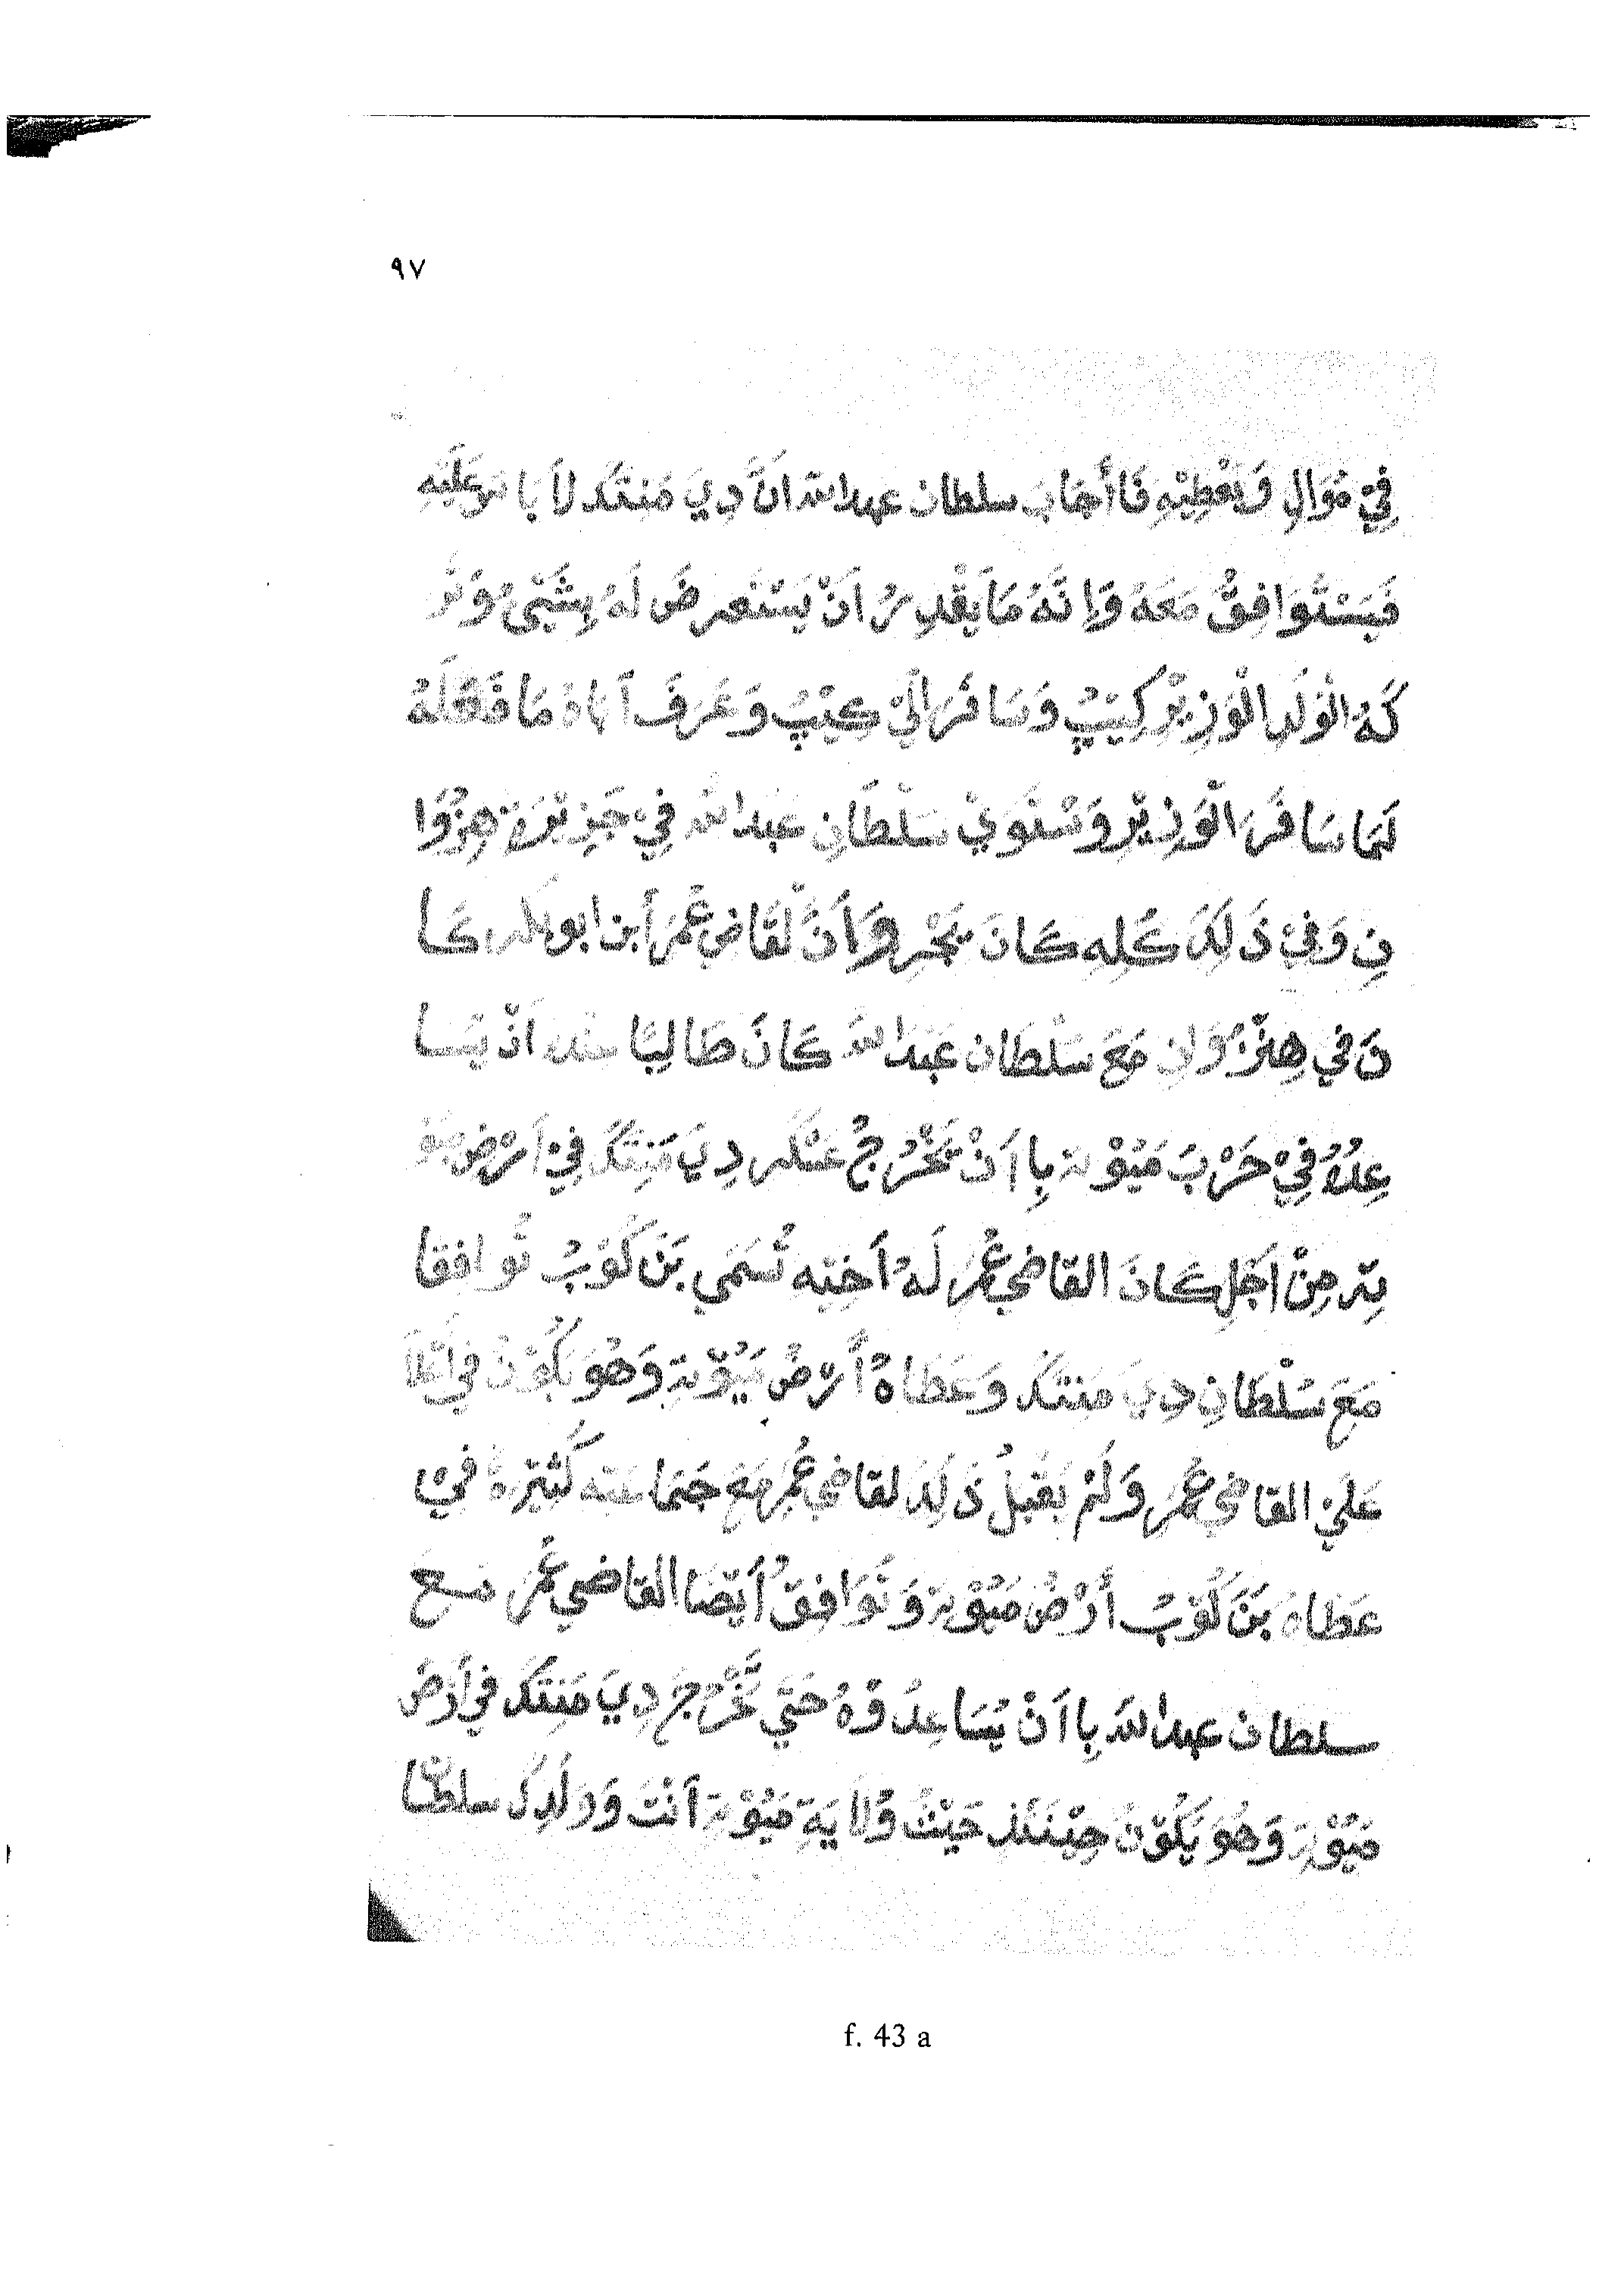 ٩٧
فِيْ مَوَالِ وَيَعْطِيْهِ فَاأَجَابَ سلطان عبدالله اَنَّ دِيَ مَنِتَكَ لاَ بَا سَ عَلَيْهِ
فَيَسْتَوَافِقْ مَعَهُ وَاِنَّهُ مَا يَقْدِرُ اَنْ يَسْتَعرضَ لَهُ بِشَيْءُ وَتَرَ
كَهُ الْوَلَدِ الْوَزِيْرِ كِيَبُ وَسَافَرَ اَلَيْ كِيَبُ وَعَرَفَ اَبَاهُ مَا فَعَلَهُ
لَمَا سَافَرَ الْوَزِيْرِ وَسْتَوَيْ سَلْطَانِ عَبْدالله فِيْ جَزِيْرَةِ هِزُوَا
نِ وَفِيْ ذَلِكَ كُلِهِ كَانَ يَجْرِ وَاَنَّ لْقَاضِيْ عُمَرْ اَبن ابو بكر كَا
نَ فِي هِنْزُوَانِ مَعَ سَلْطَان عَبْدالله كَانَ طَالِبًا اَنْ يَسَا
عِدُهُ فِيْ حَرْبَ مَيُوْتَة بِااَنْ يَخْرُجُ عَسْكَر دِيَ مَنِتَكَ فِيْ اَرْضِ مَيُو
تِة مِنْ اَجَلِ كَانَ القاضي عُمَرَ لَهُ اَخته تُسَمَي بَنَ كُوْبُ تَوافقا
مَعَ سُلْطَانِ دِيَ مَنِتَكَ وَعَطَاهُ اَرْضُ مَيُوْتَةِ وَهُوَ يَكُوْنُ فِي اَعْلاَ
عَلَيْ القاضِيْ عُمَرَ وَلَمْ يَقْبَلُ ذَلِكَ لقاضي عُمر مَعَ جَمَاعته كَثِيْرَةُ فِيْ
عَطَاهُ بَنَ كُوْبُ اَرْضُ مَيُوْتَة وَتَوَافِقُ اَيْضًا القاضي عُمَرَ مَعَ
سلطان عبدالله بِااَنْ يُسَاعِدُوْهُ حَتَّي تَخْرُجَ دِيَ مَنِتَكَ فِيْ اَرْضَ
مَيُوْتَةِ وَهُوَ يَكُوْنُ حِيْنَئذ حَيْثُ وُلاَيَةِ مَيُوْتَةِ اَنْتَ وَوَلَدِكَ سلطانا
f. 43 a